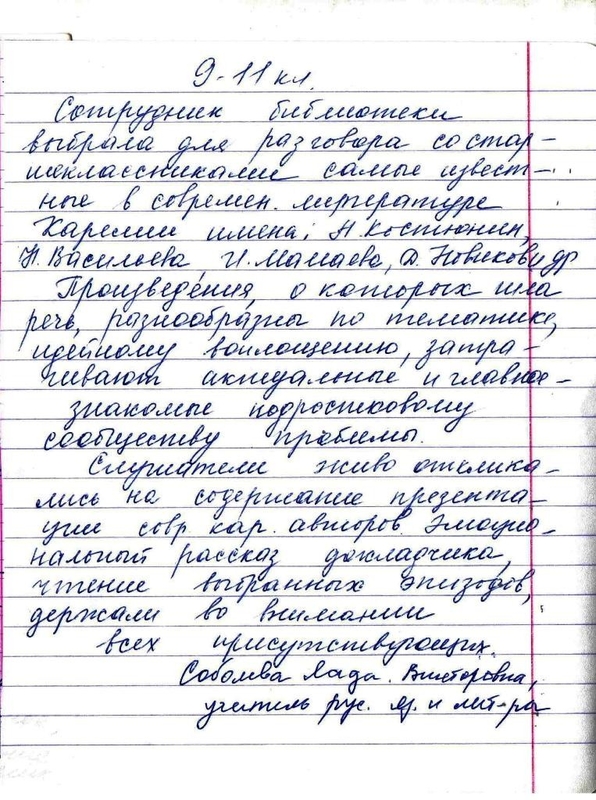 9-11 кл.
Сотрудник библиотеки
выбрала для разговора со стар-
шеклассниками самые извест-
ные в современ. литературе
Карелии имена: Н. Костюнин,
Н. Васильева, И. Мамаева, Д. Новиков и др
Произведения, о которых шла
речь, разнообразны по тематике,
идейному воплощению, затра-
гивают актуальные и главное -
знакомые подростковому
сообществу проблемы.
Слушатели живо откликa-
лись на содержание презента-
ции совр. кар. авторов. Эмоцио-
нальный рассказ докладчика,
чтение выбранных эпизодов,
держали во внимании
всех присутствующих.
Лада Викторовна,
учитель рус. яз. и лит-ры